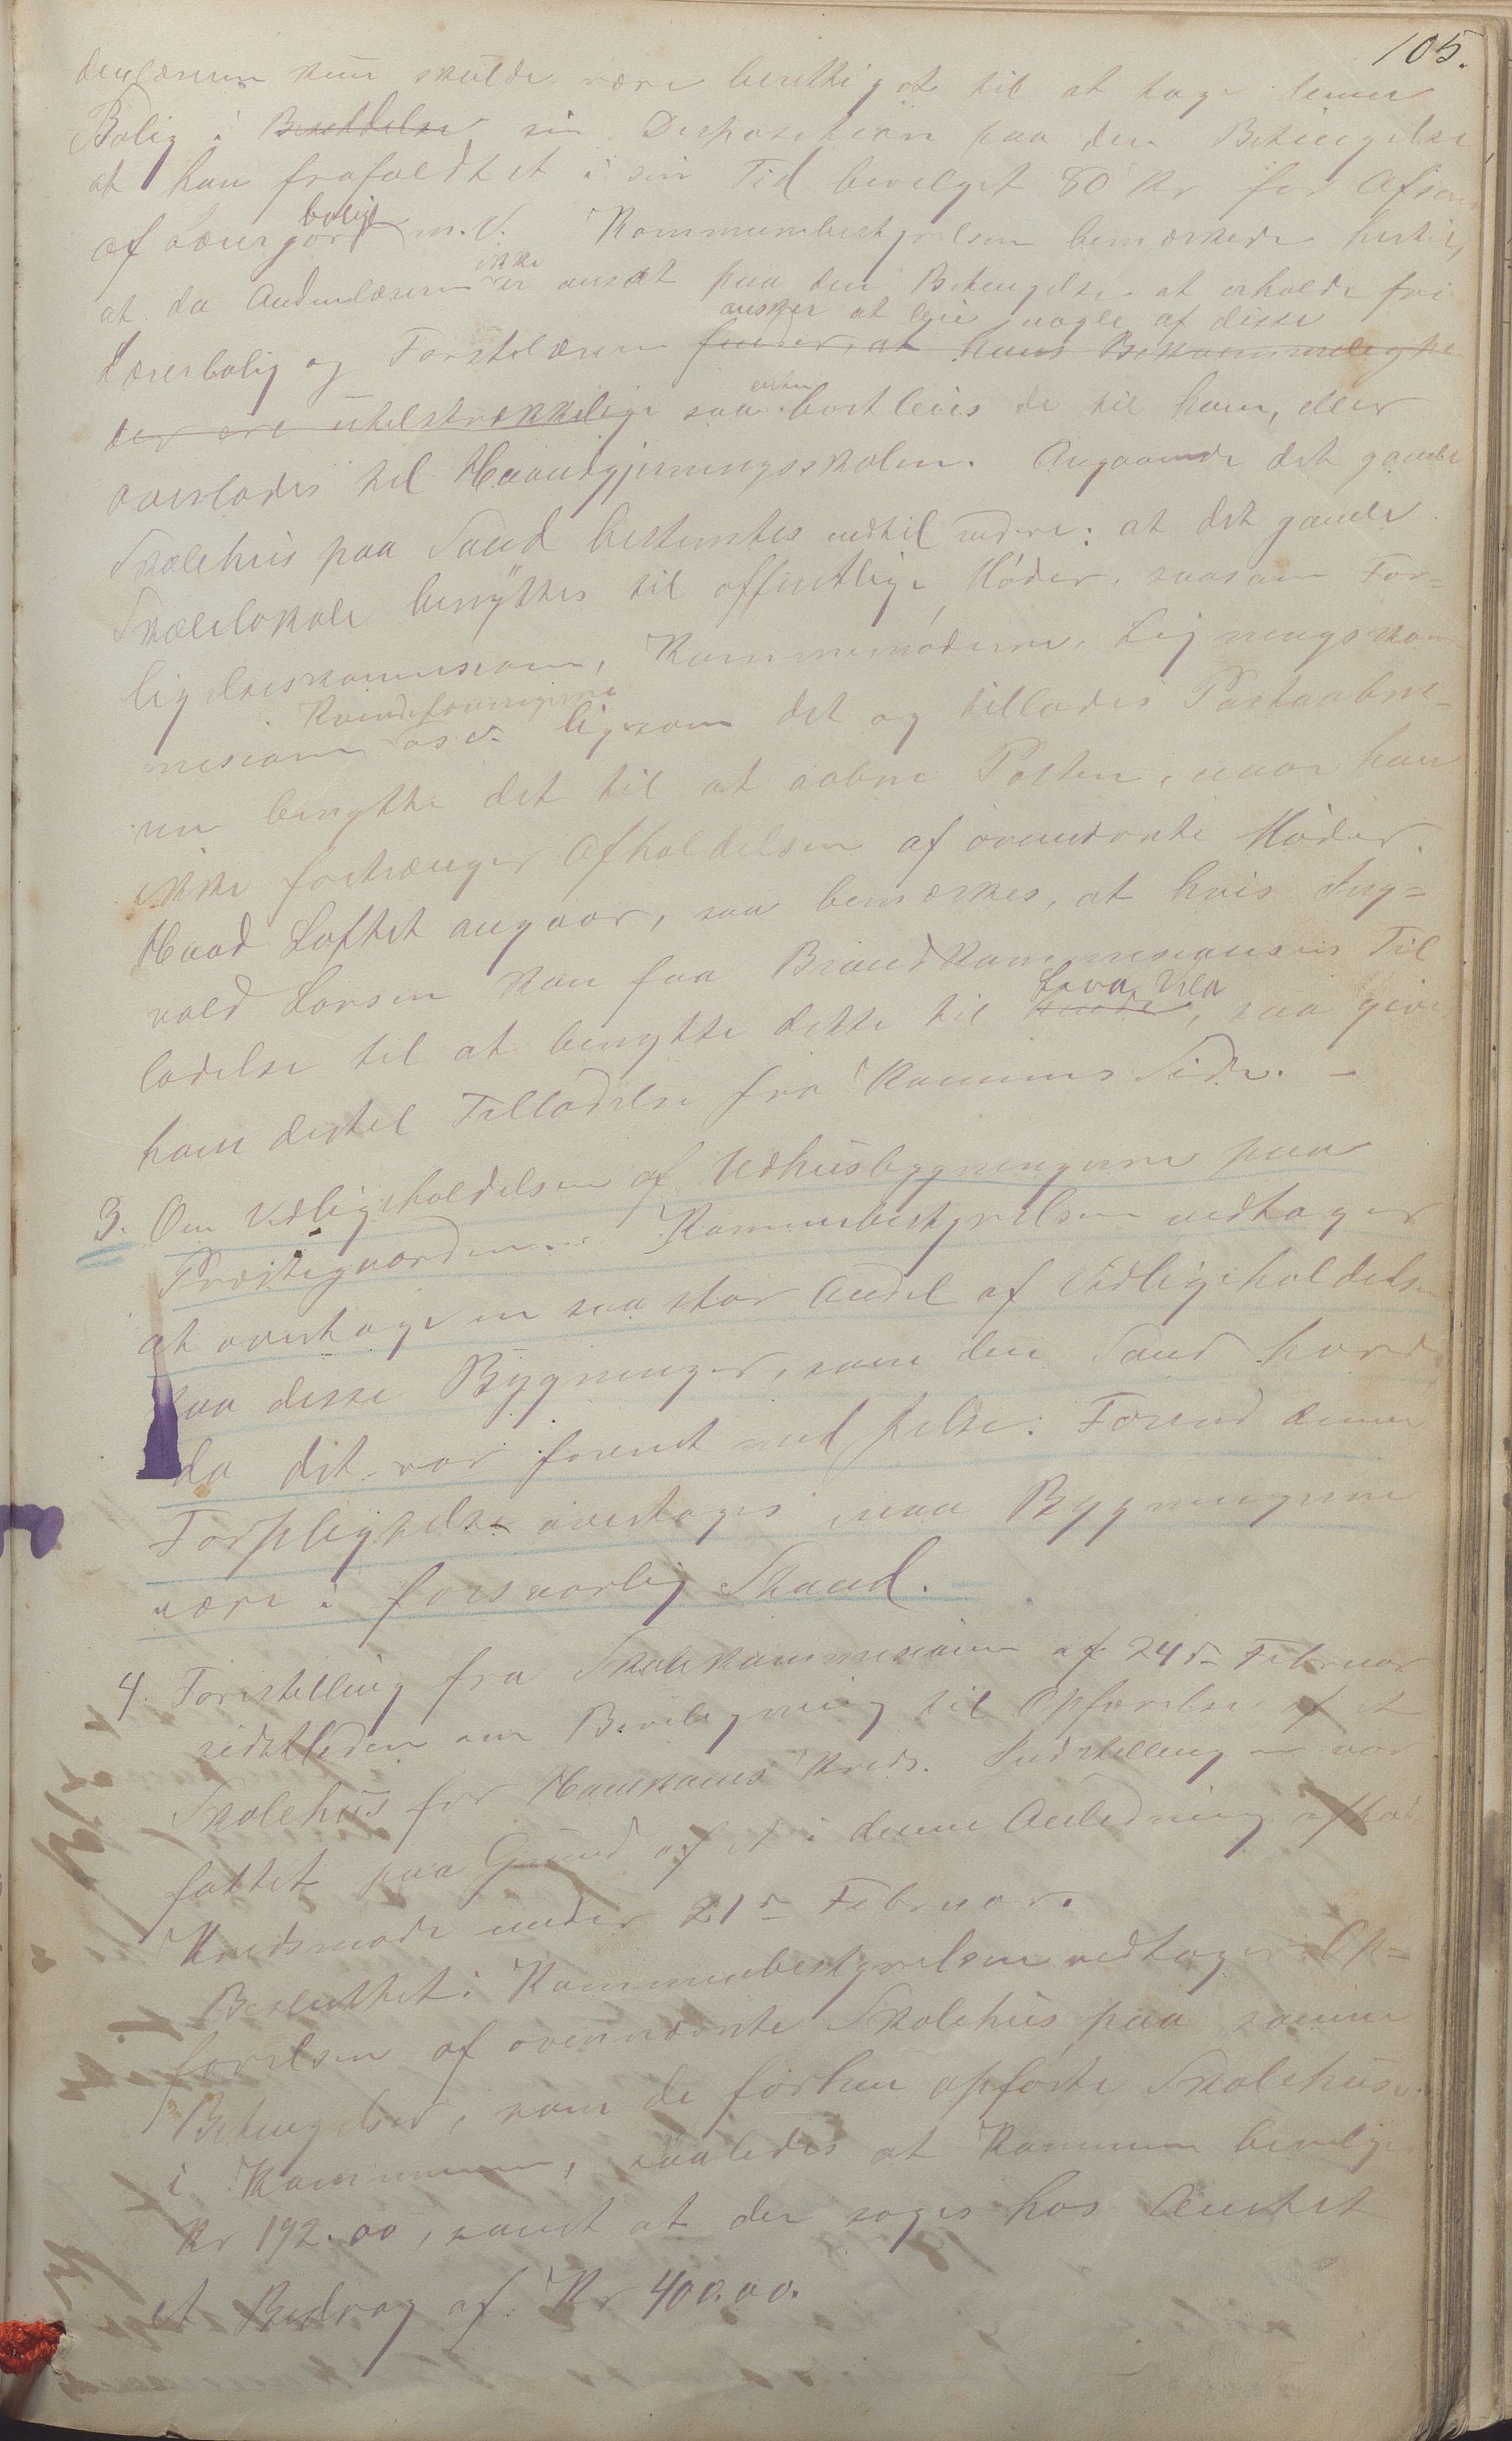 105.
denlæreren kun skulde være berettiget til at tage denne
Bolig i Besiddelse sin Disposition paa den Betingelse,
at han frafaldt et i sin Tid bevilget 80 Kr for Afsavn
af Lærerjord bolig m. v. Kommunebestyrelsen bemærkede hertil,
at da Andenlæreren ikke er ansat paa den Betingelse at erholde fri
Lærerbolig og Førstelæreren finder, at hans Bekvemmeligheder
ønsker at leie nogle af disse
der ere utilstrækkelige saa enten bortleies de til ham, eller
overlades til Haandgjerningsskolen. Angaaende det gamle
Skolehus paa Sand bestemtes indtil videre: at det gamle
Skolelokale benyttes til offentlige Møder, saasom For-
ligelseskommission, Kommunemøderne, Ligningskom-
Kvindeforeningerne
mission osv. ligesom det og tillades Postaabne-
ren benytte det til at aabne Posten, naar han
ikke fortrænger Afholdelsen af ovennævnte Møder.
Hvad Loftet angaar, saa bemærkes, at hvis Ing-
vald Larsen kan faa Brandkommissionens Til
ladelse til at benytte dette til, saa gives
ham dertil Tilladelse fra Kommunens Side. –
3. Om Vedligeholdelsen af Udhusbygningerne paa
Præstegaarden. Kommunebestyrelsen vedtager
at overtage en saa stor Andel af Vedligeholdelsen
paa disse Bygninger, som den Sand havde
da det var forenet med Jelse. Forend denne
Forpligtelse overtages maa Bygningerne
være i forsvarlig Stand.
4. Forestilling fra Skolekommissionen af 24de Februar
sidstleden om Bevilgning til Opførelse af et
Skolehus for Hauskanes Kreds. Indstilling var
fattet paa Grund af et i denne Anledning afholdt
Kredsmøde under 21de Februar.
Besluttet: Kommunebestyrelsen vedtager Op-
førelsen af ovennævnte Skolehus paa samme
Betingelser, som de førhen opførte Skolehuse
i Kommunen, saaledes at Kommunen bevilger
Kr 192.00, samt at der søges hos Amtet
et Bidrag af Kr 400.00.